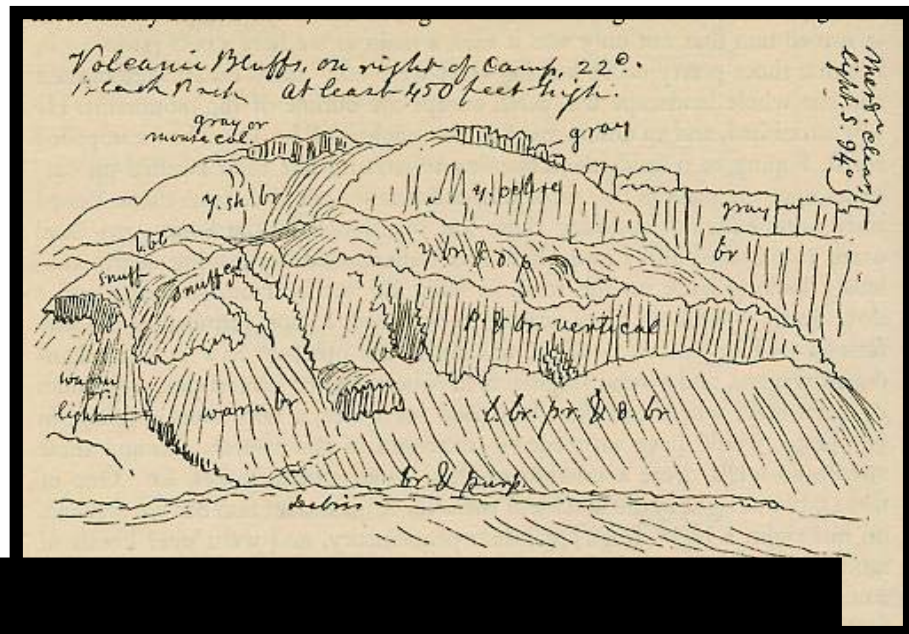 Volcanic Bluffs, on right of Camp, 22d.
Black Rock at least 450 feet high.
Merdn. clear,
light. S. 94°
gray or
mouse col.
gray
y. sh br
y. ochre
gray
br
snuff
snuff col
P. & br. vertical
warm
or
light
warm br
b. br. pr. & o. br.
br. & purp.
debris